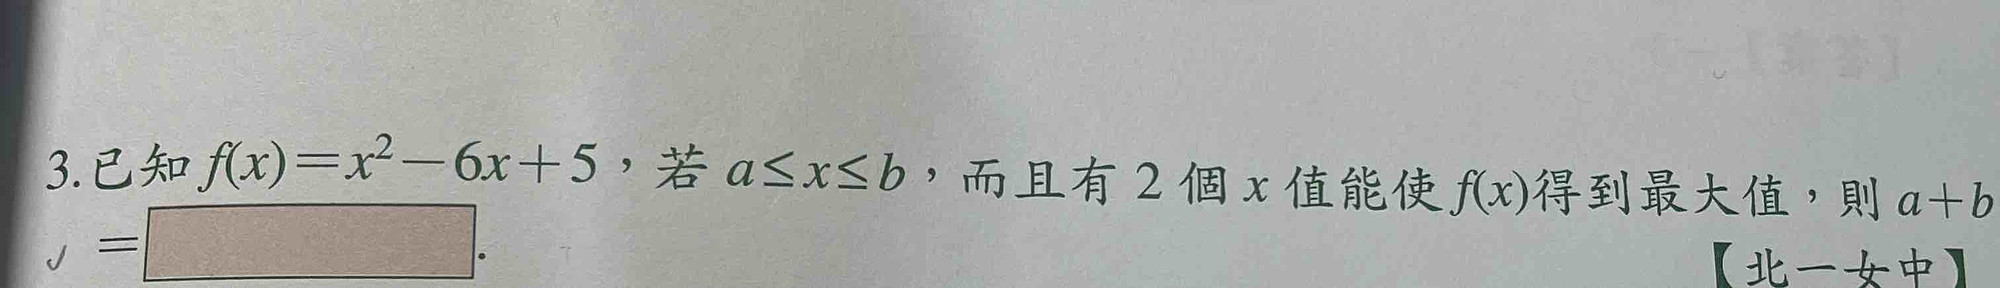 3.已知 f(x)=x²-6x+5，若 a≤x≤b，而且有 2 個 x 值能使 f(x)得到最大值，則 a+b
=.
【北一女中】